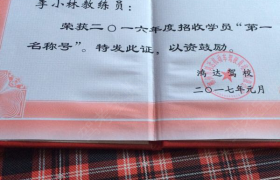 李小林教练员:
荣获二〇一六年度招收学员“第一
名称号”。特发此证，以资鼓励。
鸿达驾校
二〇一七年元月